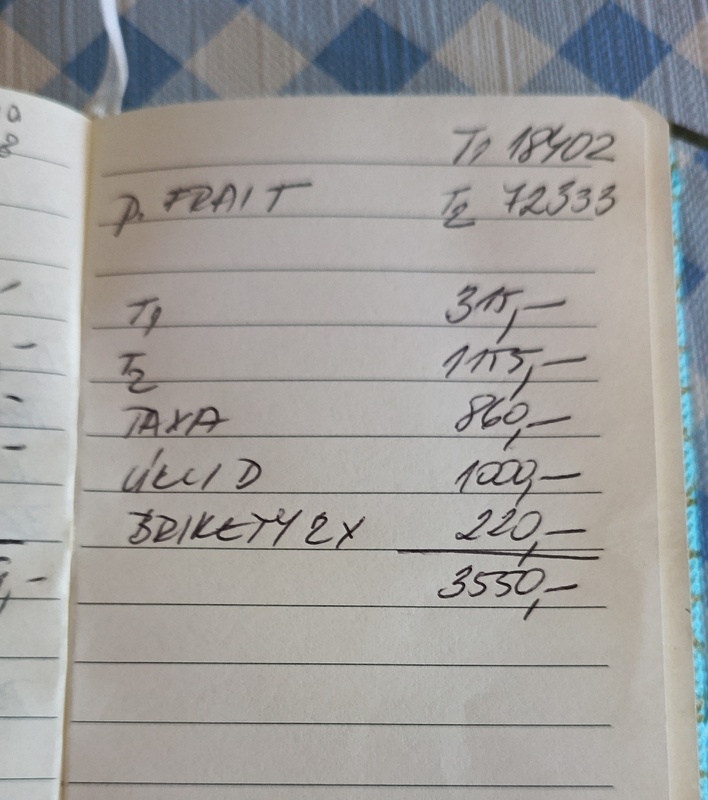 T1 18402
p. FRAIT T2 72333
T1 315,-
T2 1155,-
TAXA 860,-
ÚKLID 1000,-
BRIKETY 2X 220,-
3550,-